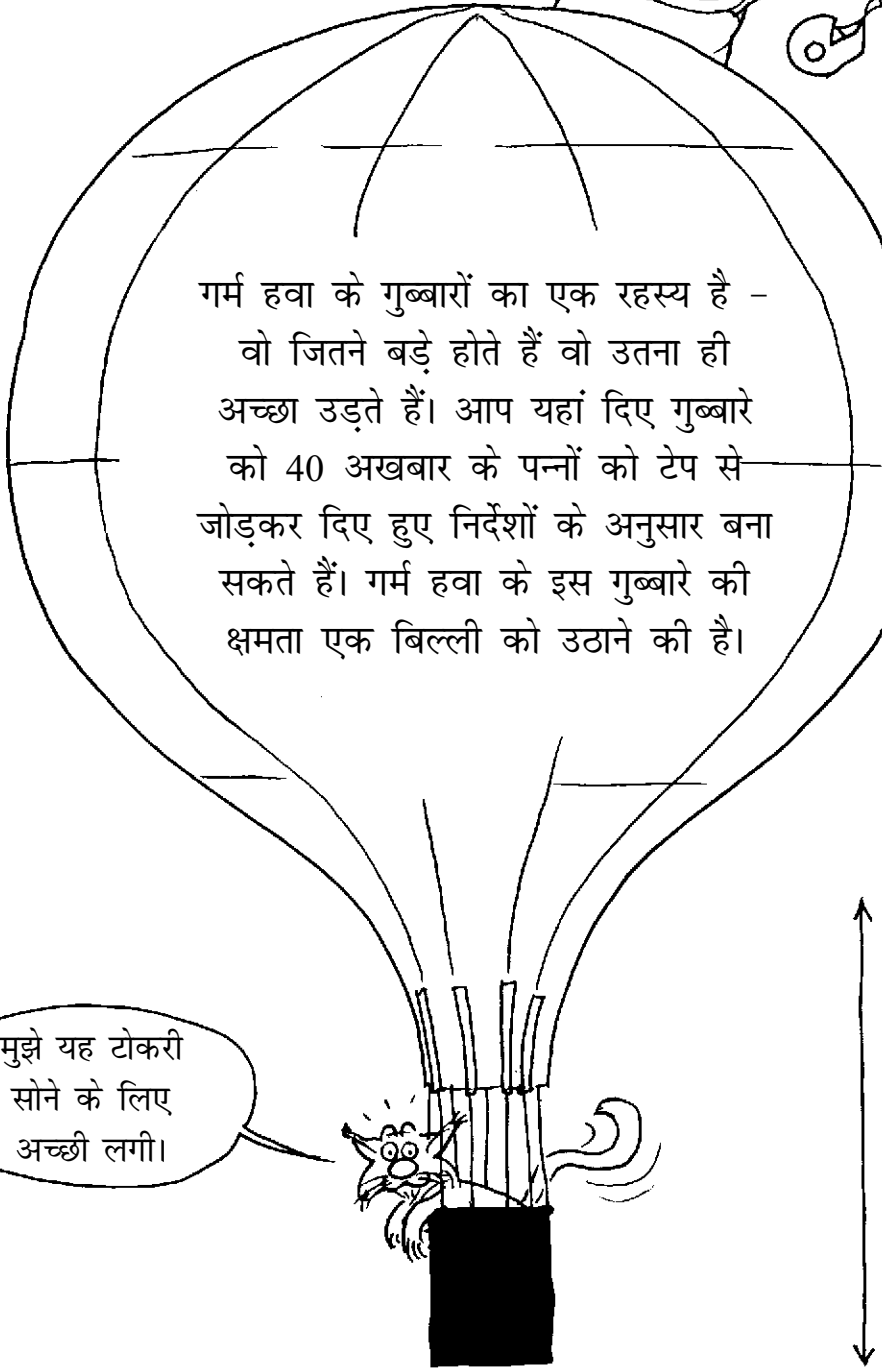 गर्म हवा के गुब्बारों का एक रहस्य है -
वो जितने बड़े होते हैं वो उतना ही
अच्छा उड़ते हैं। आप यहां दिए गुब्बारे
को 40 अखबार के पन्नों को टेप से
जोड़कर दिए हुए निर्देशों के अनुसार बना
सकते हैं। गर्म हवा के इस गुब्बारे की
क्षमता एक बिल्ली को उठाने की है।
मुझे यह टोकरी
सोने के लिए
अच्छी लगी।